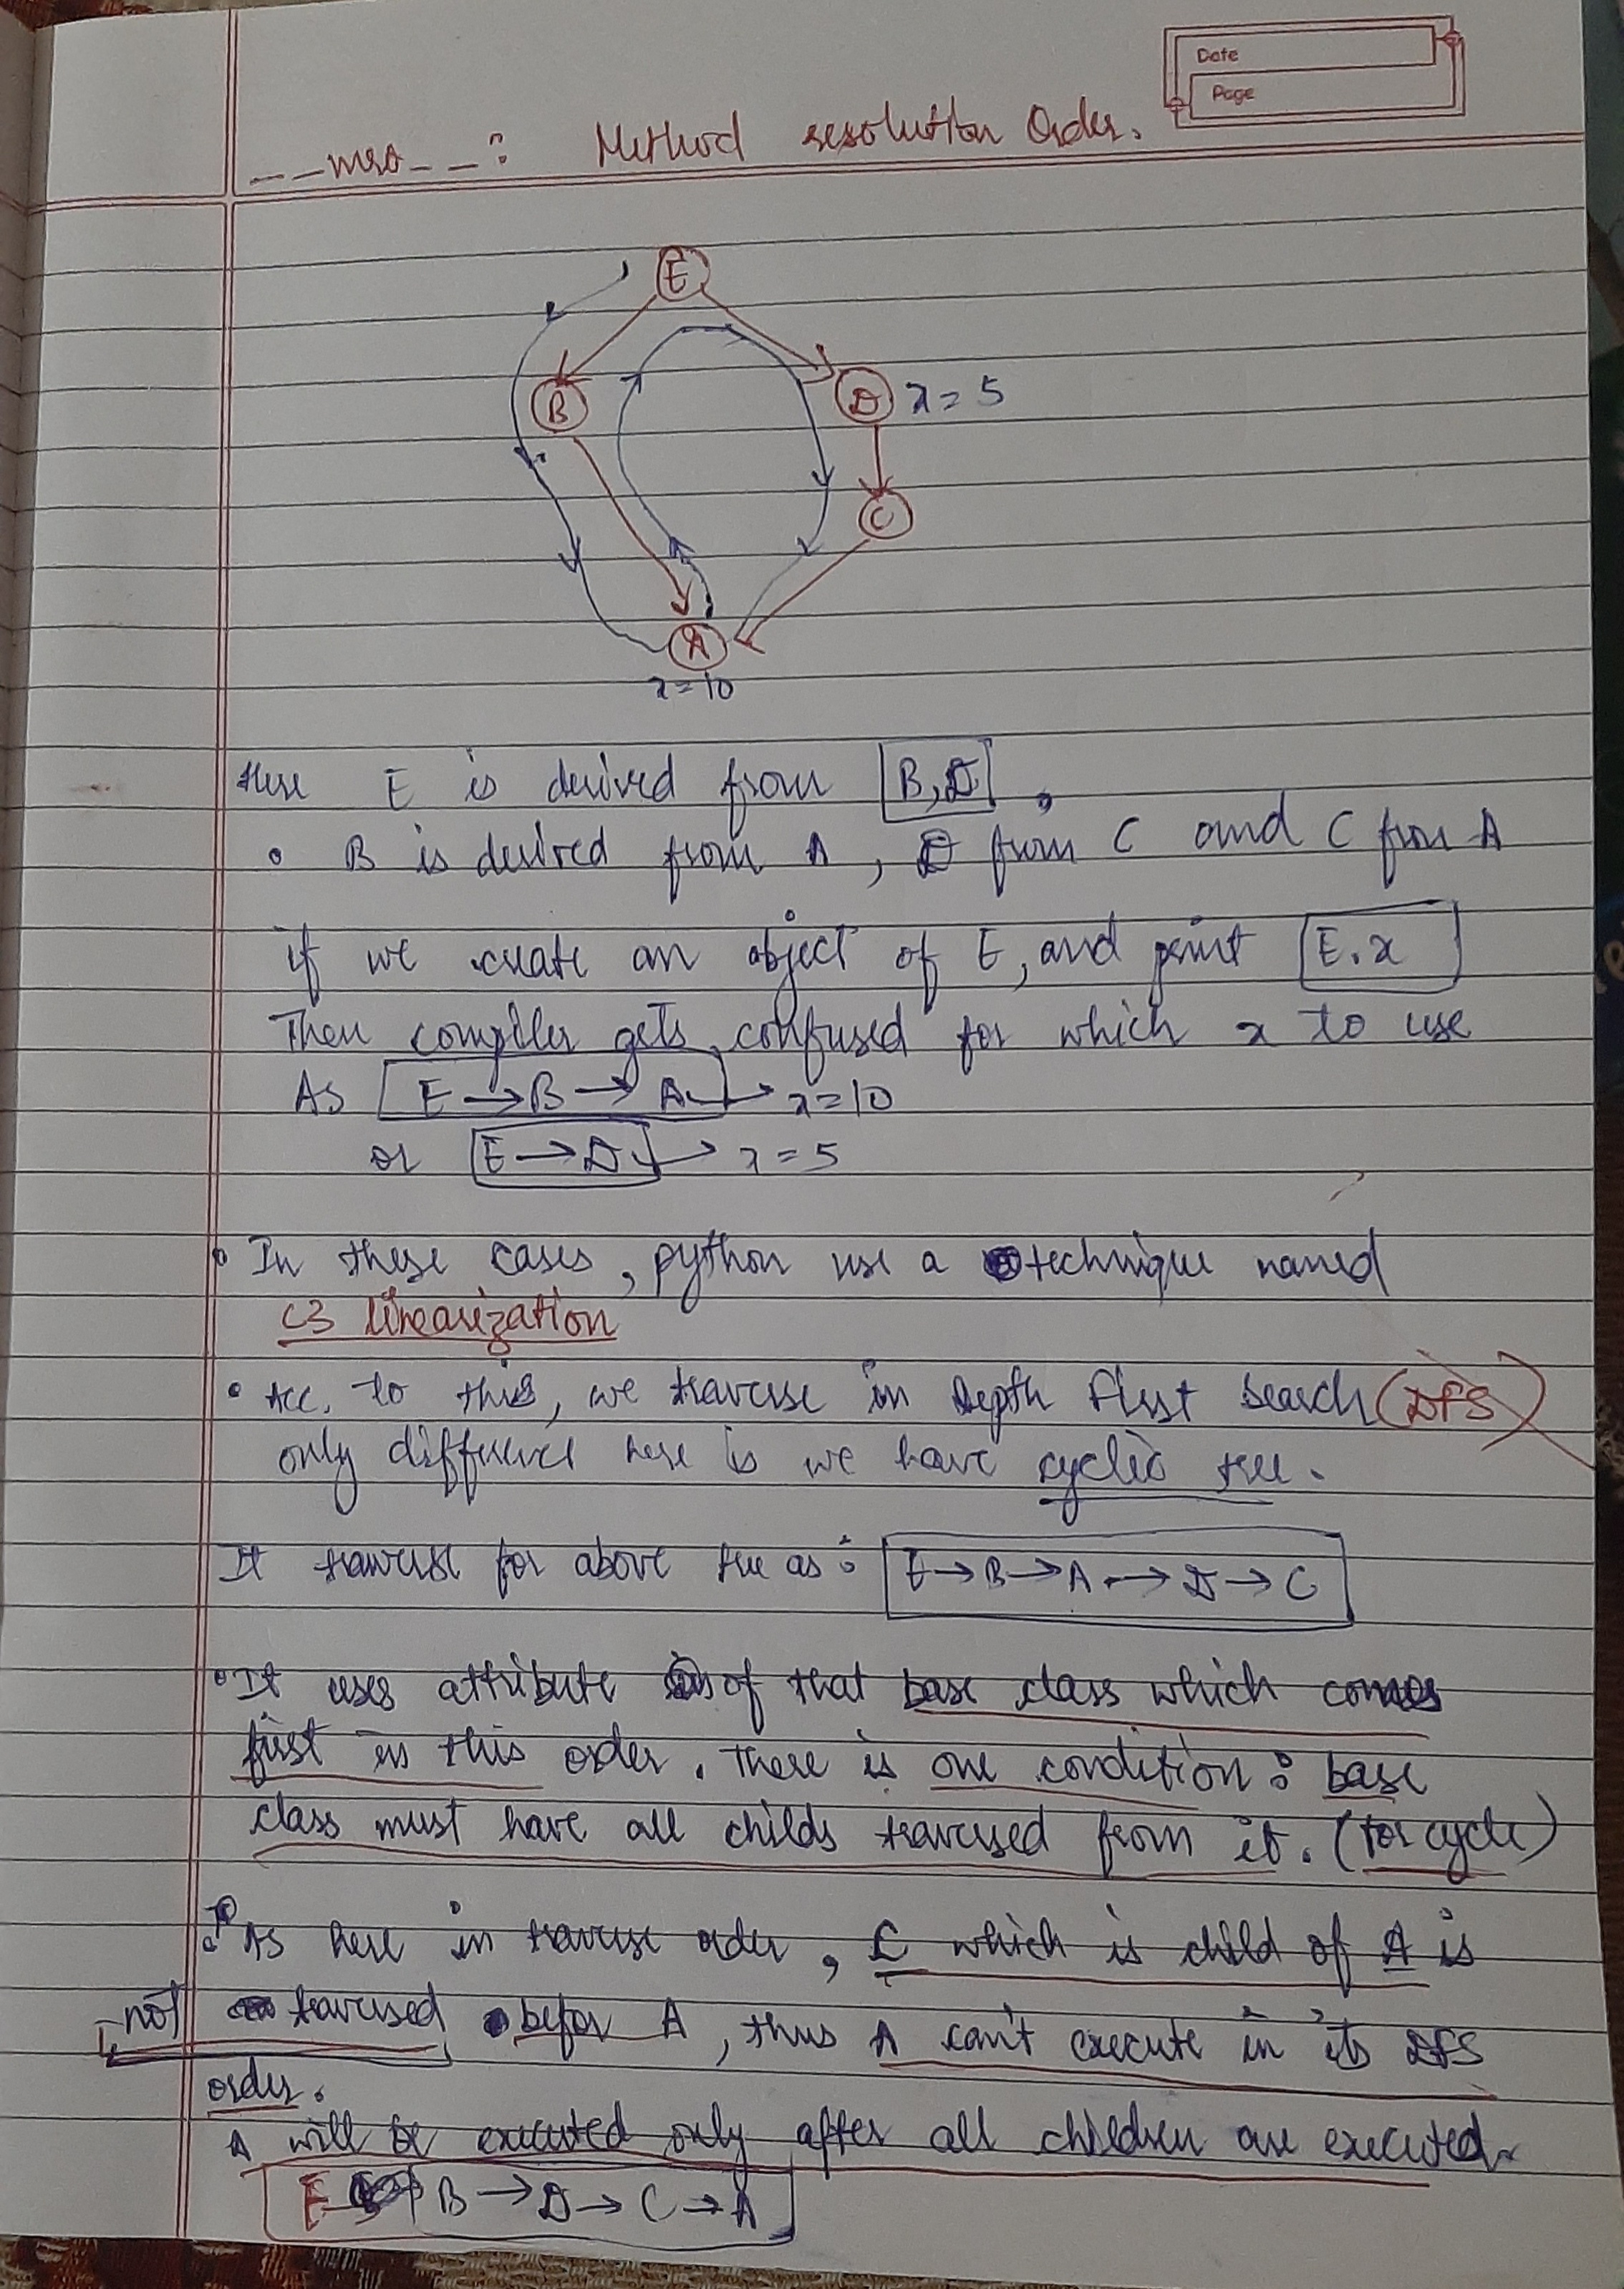 Date
Page
__mro__: Method resolution Order.
E
B
D x = 5
C
A
x = 10
Here E is derived from [B, D],
• B is derived from A, D from C and C from A
if we create an object of E, and print E.x
Then compiler gets confused for which x to use
As E → B → A → x = 10
or E → D → x = 5
• In these cases, python use a technique named
C3 linearization
• Acc. to this, we traverse in Depth First Search (DFS)
only difference here is we have cyclic tree.
It traverse for above tree as: E → B → A → D → C
• It uses attribute of that base class which comes
first in this order. There is one condition: base
class must have all childs traversed from it. (for cycle)
As here in traverse order, C which is child of A is
not traversed befor A, thus A can't execute in its DFS
order.
A will be executed only after all children are executed.
E B → D → C → A